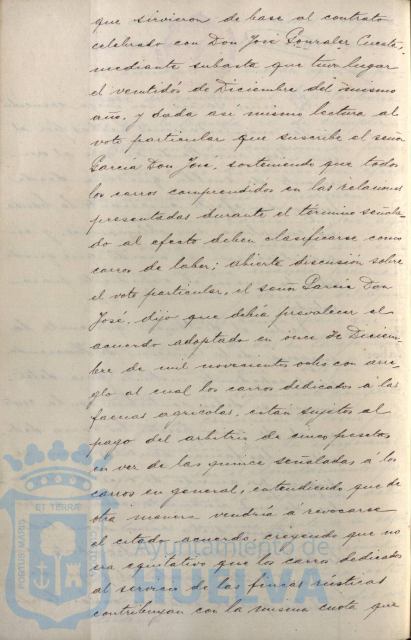 que sirvieron de base al contrato
celebrado con Don José Gonzalez Cuesta,
mediante subasta que tuvo lugar
el ventidós de Diciembre del mismo
año, y dada asi mismo lectura al
voto particular que suscribe el señor
García Don José, sosteniendo que todos
los carros comprendidos en las relaciones
presentadas durante el término señala-
do al efecto deben clasificarse como
carros de labor; abierta discusión sobre
el voto particular, el señor García Don
José, dijo que debía prevalecer el
acuerdo adoptado en once de Diciem-
bre de mil novecientos ocho con arre-
glo al cual los carros dedicados a las
faenas agricolas, están sujetos al
pago del arbitrio de cinco pesetas
en vez de las quince señaladas á los
carros en general, entendiendo que de
otra manera vendría á revocarse
el citado acuerdo, creyendo que no
era equitativo que los carros dedicados
al servicio de las fincas rústicas
contribuyan con la misma cuota que
PORTUS MARIS ET TERRAE
Ayuntamiento de
HUELVA